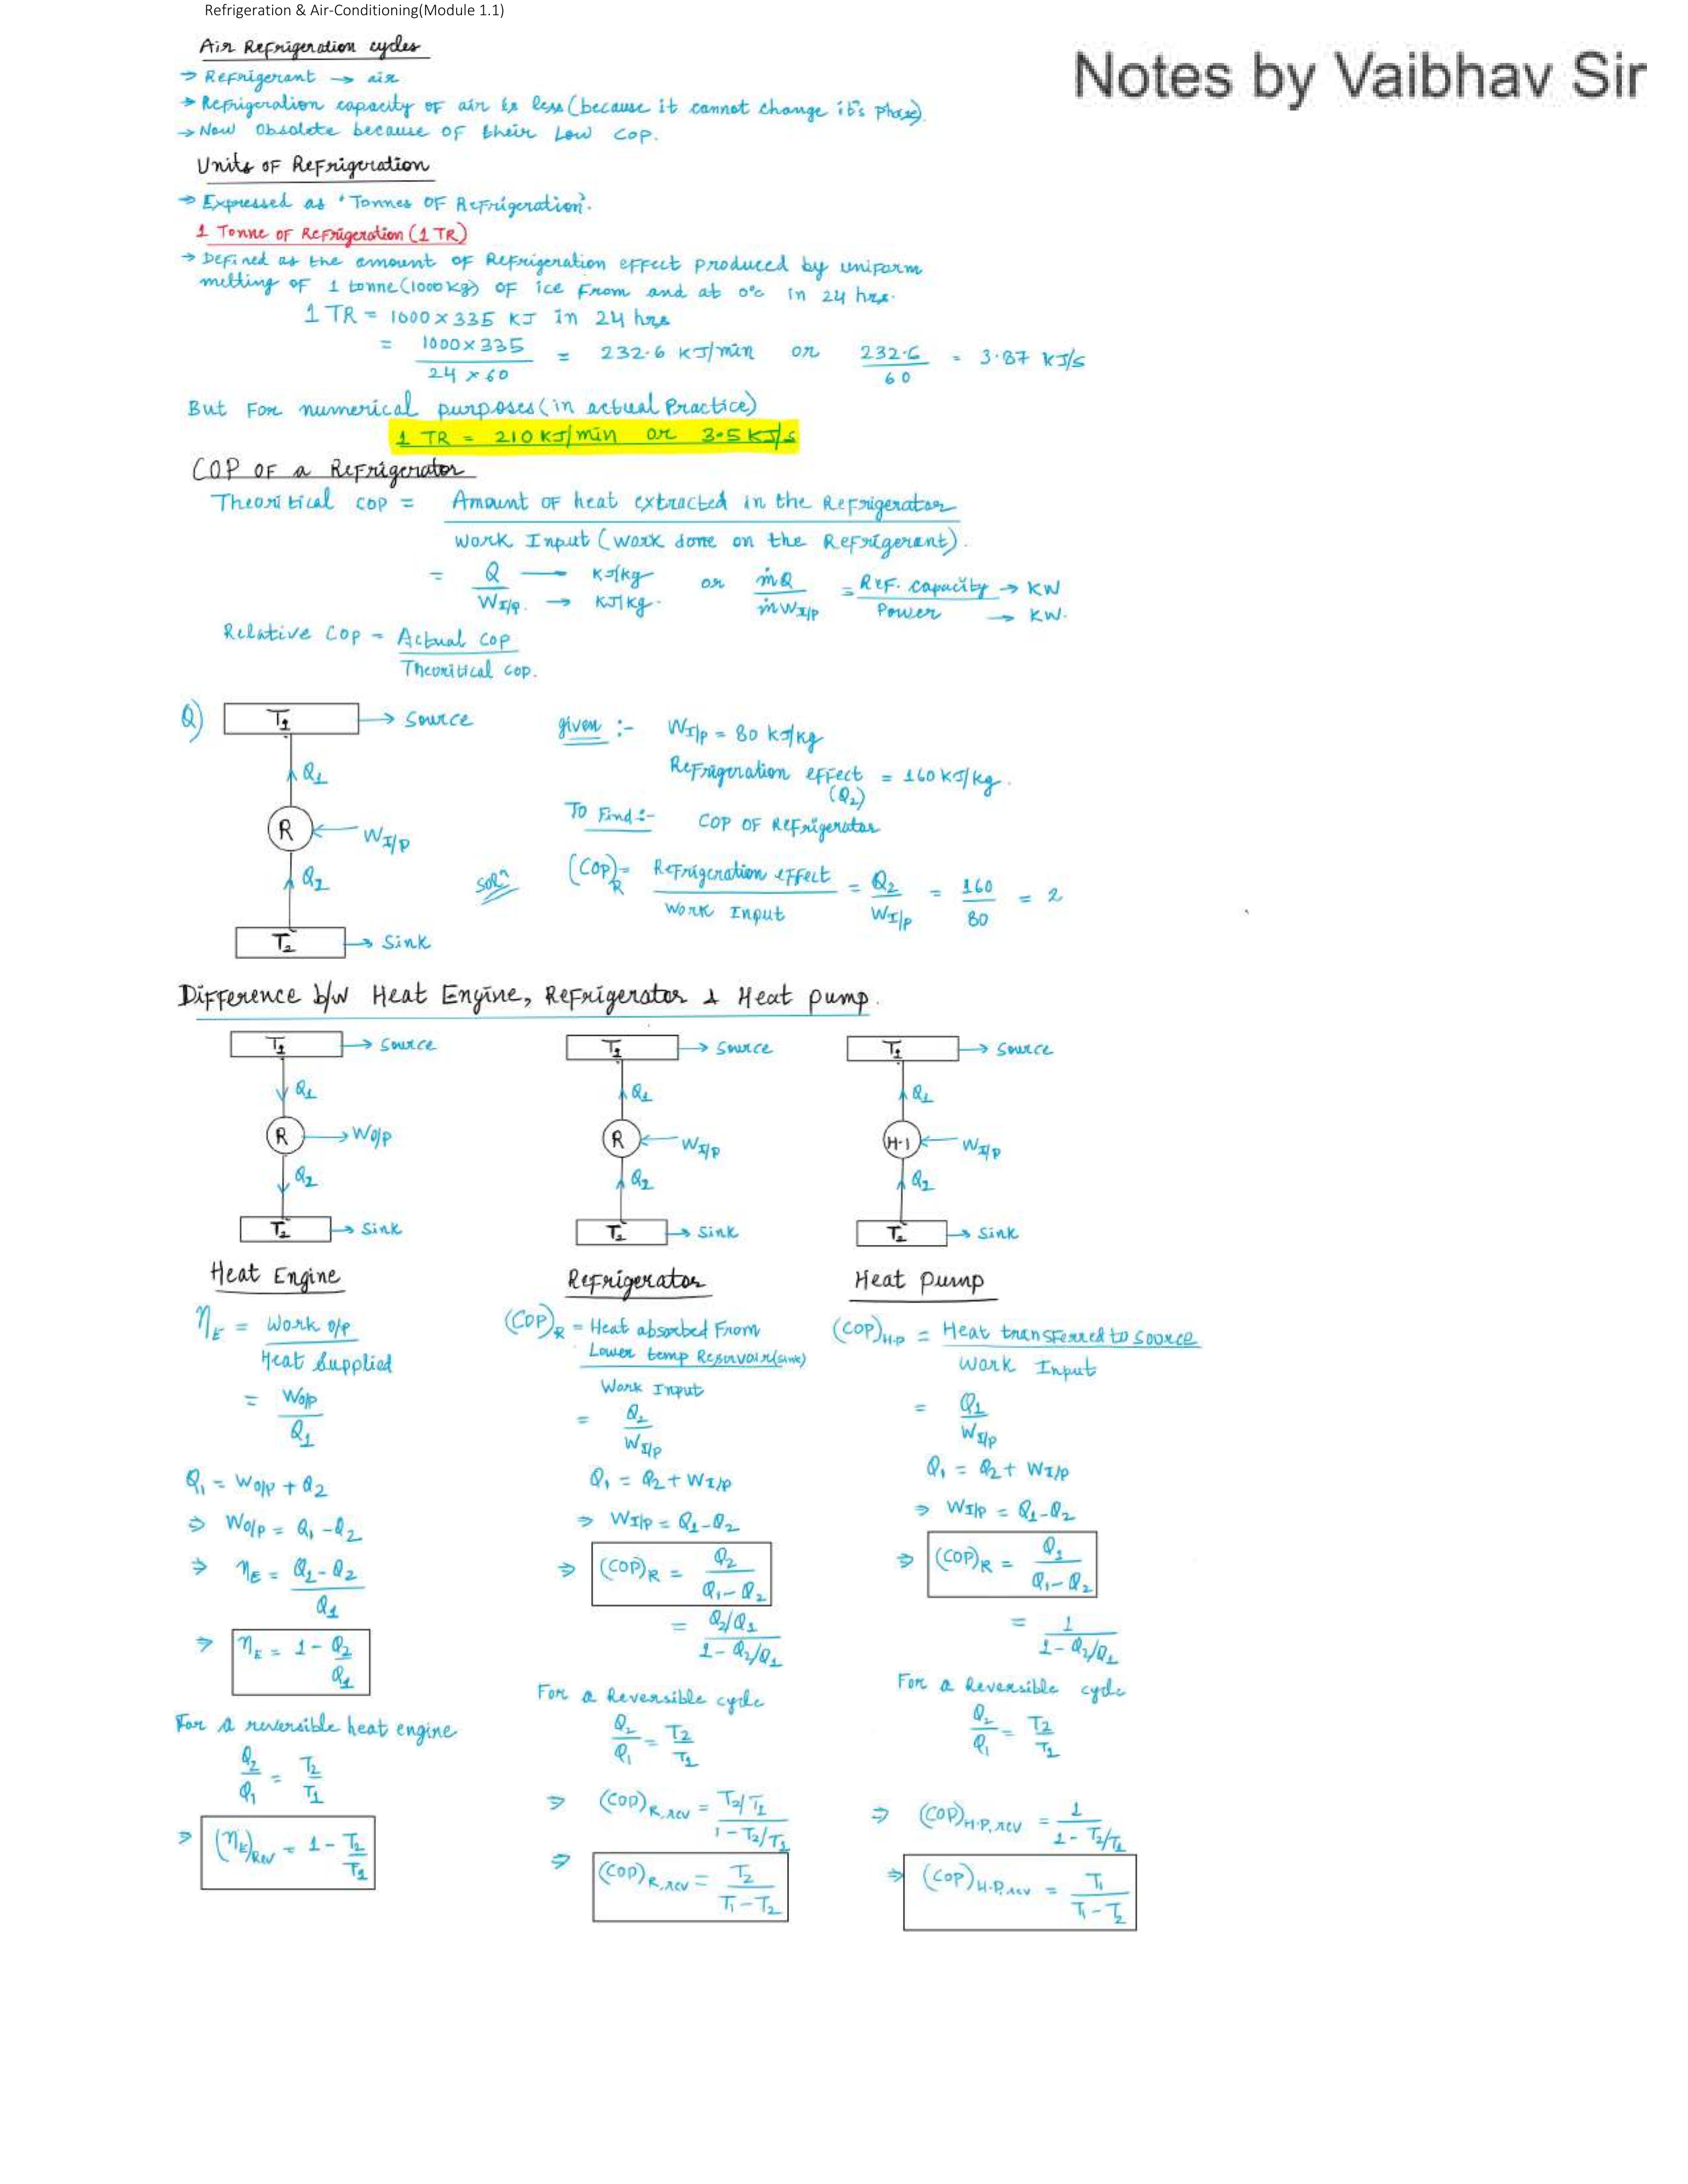 Refrigeration & Air-Conditioning(Module 1.1)
Notes by Vaibhav Sir
Air Refrigeration cycles
→ Refrigerant → air
→ Refrigeration capacity of air is less (because it cannot change it's phase)
→ Now Obsolete because of their Low COP.
Units of Refrigeration
→ Expressed as 'Tonnes of Refrigeration'.
1 Tonne of Refrigeration (1 TR)
→ Defined as the amount of Refrigeration effect produced by uniform
melting of 1 tonne (1000 kg) of ice from and at 0°c in 24 hrs.
1 TR = 1000 × 335 KJ in 24 hrs
= 1000 × 335 / 24 × 60 = 232.6 KJ/min or 232.6 / 60 = 3.87 KJ/s
But For numerical purposes (in actual Practice)
1 TR = 210 KJ/min or 3.5 KJ/s
COP of a Refrigerator
Theoritical cop = Amount of heat extracted in the Refrigerator
Work Input (work done on the Refrigerant).
= Q / W_I/P → KJ/kg → KJ/kg. or ṁQ / ṁW_I/P = Ref. capacity → KW / Power → KW.
Relative cop = Actual cop
Theoritical cop.
Q) T₁ → Source
Q₁
R ← W_I/P
Q₂
T₂ → Sink
given :- W_I/P = 80 kJ/kg
Refrigeration effect = 160 KJ/kg.
(Q₂)
To Find :- COP of Refrigerator
Solⁿ (COP)_R = Refrigeration effect / Work Input = Q₂ / W_I/P = 160 / 80 = 2
Difference b/w Heat Engine, Refrigerator & Heat pump.
T₁ → Source
Q₁
R → W_O/P
Q₂
T₂ → Sink
T₁ → Source
Q₁
R ← W_I/P
Q₂
T₂ → Sink
T₁ → Source
Q₁
H-1 ← W_I/P
Q₂
T₂ → Sink
Heat Engine
η_E = Work o/p
Heat Supplied
= W_O/P / Q₁
Q₁ = W_O/P + Q₂
⇒ W_O/P = Q₁ - Q₂
⇒ η_E = Q₁ - Q₂ / Q₁
⇒ η_E = 1 - Q₂/Q₁
For a reversible heat engine
Q₂/Q₁ = T₂/T₁
⇒ (η_E)_Rev = 1 - T₂/T₁
Refrigerator
(COP)_R = Heat absorbed From
Lower temp Reservoir (sink)
Work Input
= Q₂ / W_I/P
Q₁ = Q₂ + W_I/P
⇒ W_I/P = Q₁ - Q₂
⇒ (COP)_R = Q₂ / Q₁ - Q₂
= Q₂/Q₁ / 1 - Q₂/Q₁
For a Reversible cycle
Q₂/Q₁ = T₂/T₁
⇒ (COP)_R,rev = T₂/T₁ / 1 - T₂/T₁
⇒ (COP)_R,rev = T₂ / T₁ - T₂
Heat Pump
(COP)_H.P = Heat transferred to source
Work Input
= Q₁ / W_I/P
Q₁ = Q₂ + W_I/P
⇒ W_I/P = Q₁ - Q₂
⇒ (COP)_R = Q₁ / Q₁ - Q₂
= 1 / 1 - Q₂/Q₁
For a Reversible cycle
Q₂/Q₁ = T₂/T₁
⇒ (COP)_H.P,rev = 1 / 1 - T₂/T₁
⇒ (COP)_H.P,rev = T₁ / T₁ - T₂